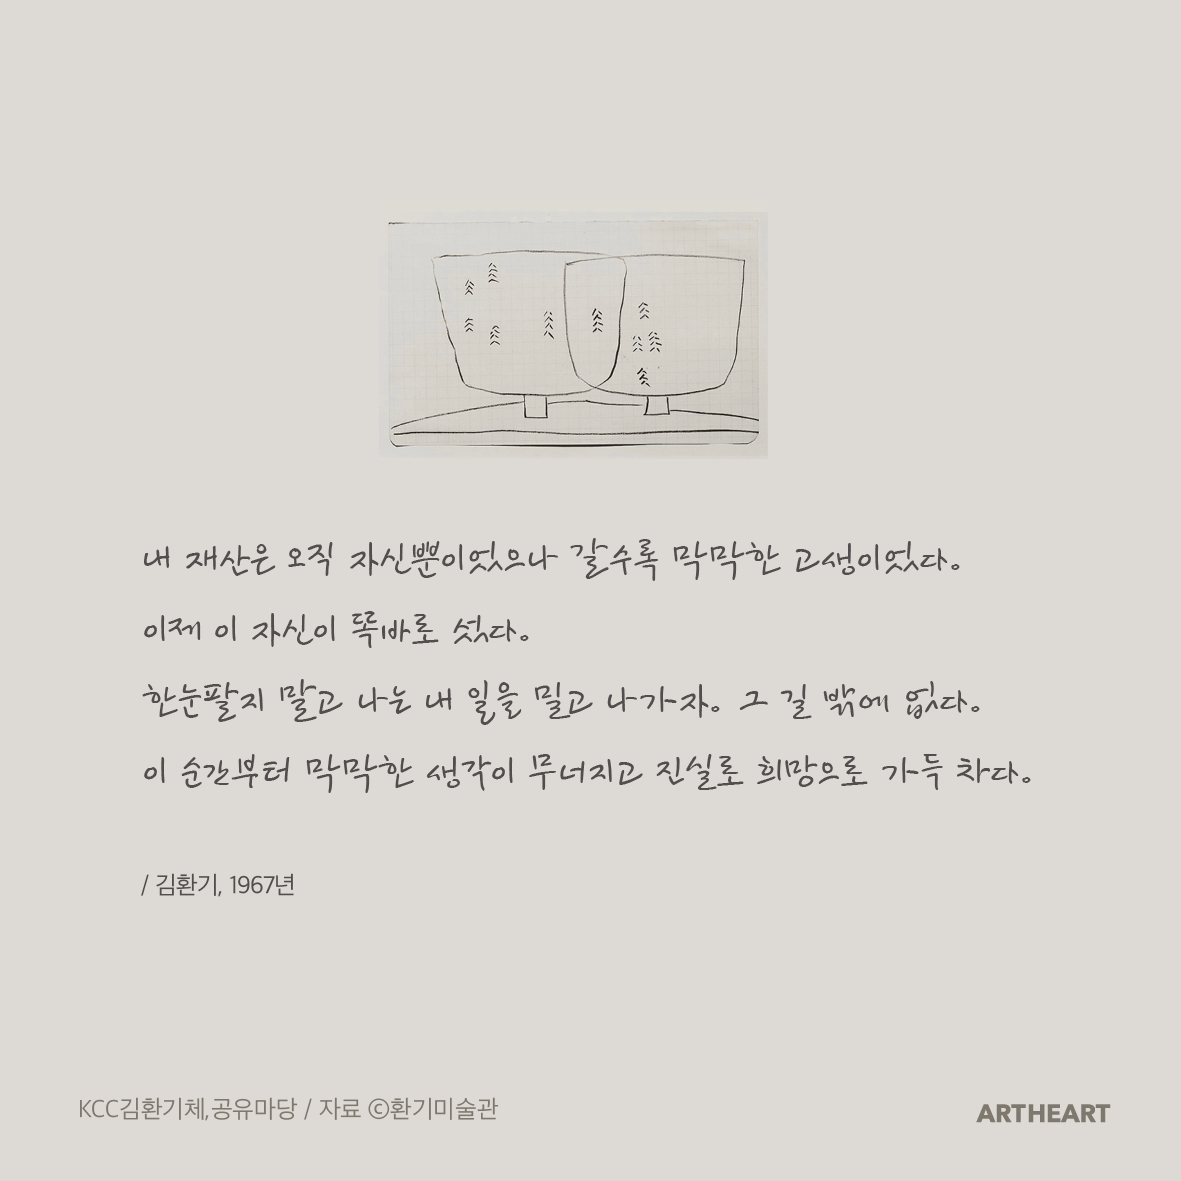 내 재산은 오직 자신뿐이엇으나 갈수록 막막한 고생이엇다.
이제 이 자신이 똑바로 섯다.
한눈팔지 말고 나는 내 일을 밀고 나가자. 그 길 밖에 없다.
이 순간부터 막막한 생각이 무너지고 진실로 희망으로 가득 차다.
/ 김환기, 1967년
KCC김환기체,공유마당 / 자료 ©환기미술관
ARTHEART